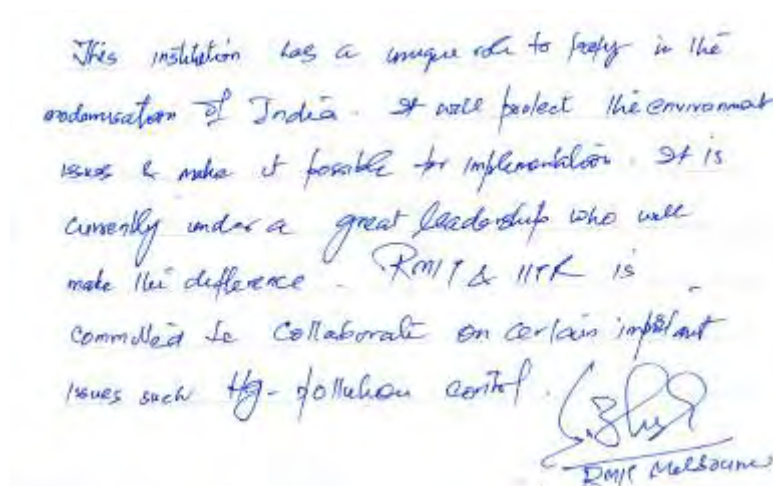 This institution has a unique role to play in the
modernisation of India. It will protect the environment
issues & make it possible for implementation. It is
currently under a great leadership who will
make the difference. RMIT & IITR is
committed to collaborate on certain important
issues such Hg-pollution control.
RMIT Melbourne